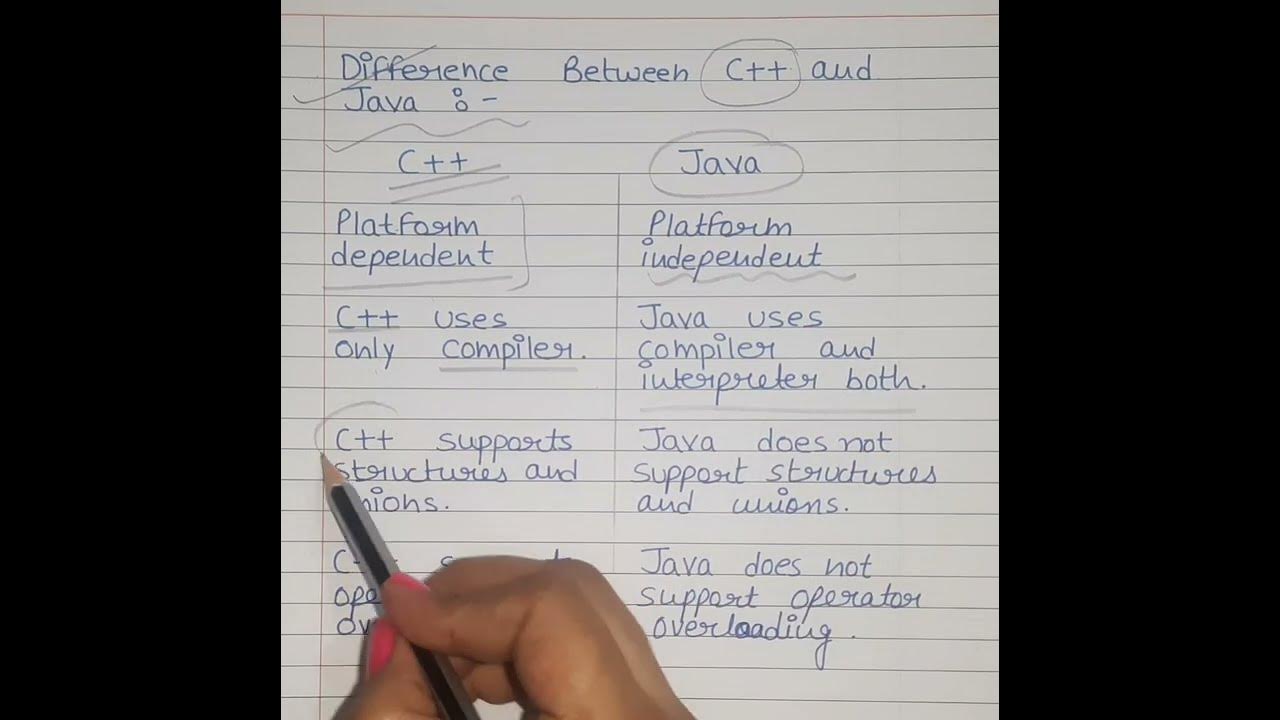 Difference Between C++ and
Java :-
C++
Java
Platform
dependent
Platform
independent
C++ uses
only compiler.
Java uses
compiler and
interpreter both.
C++ supports
structures and
Java does not
support structures
and unions.
Java does not
support operator
overloading.